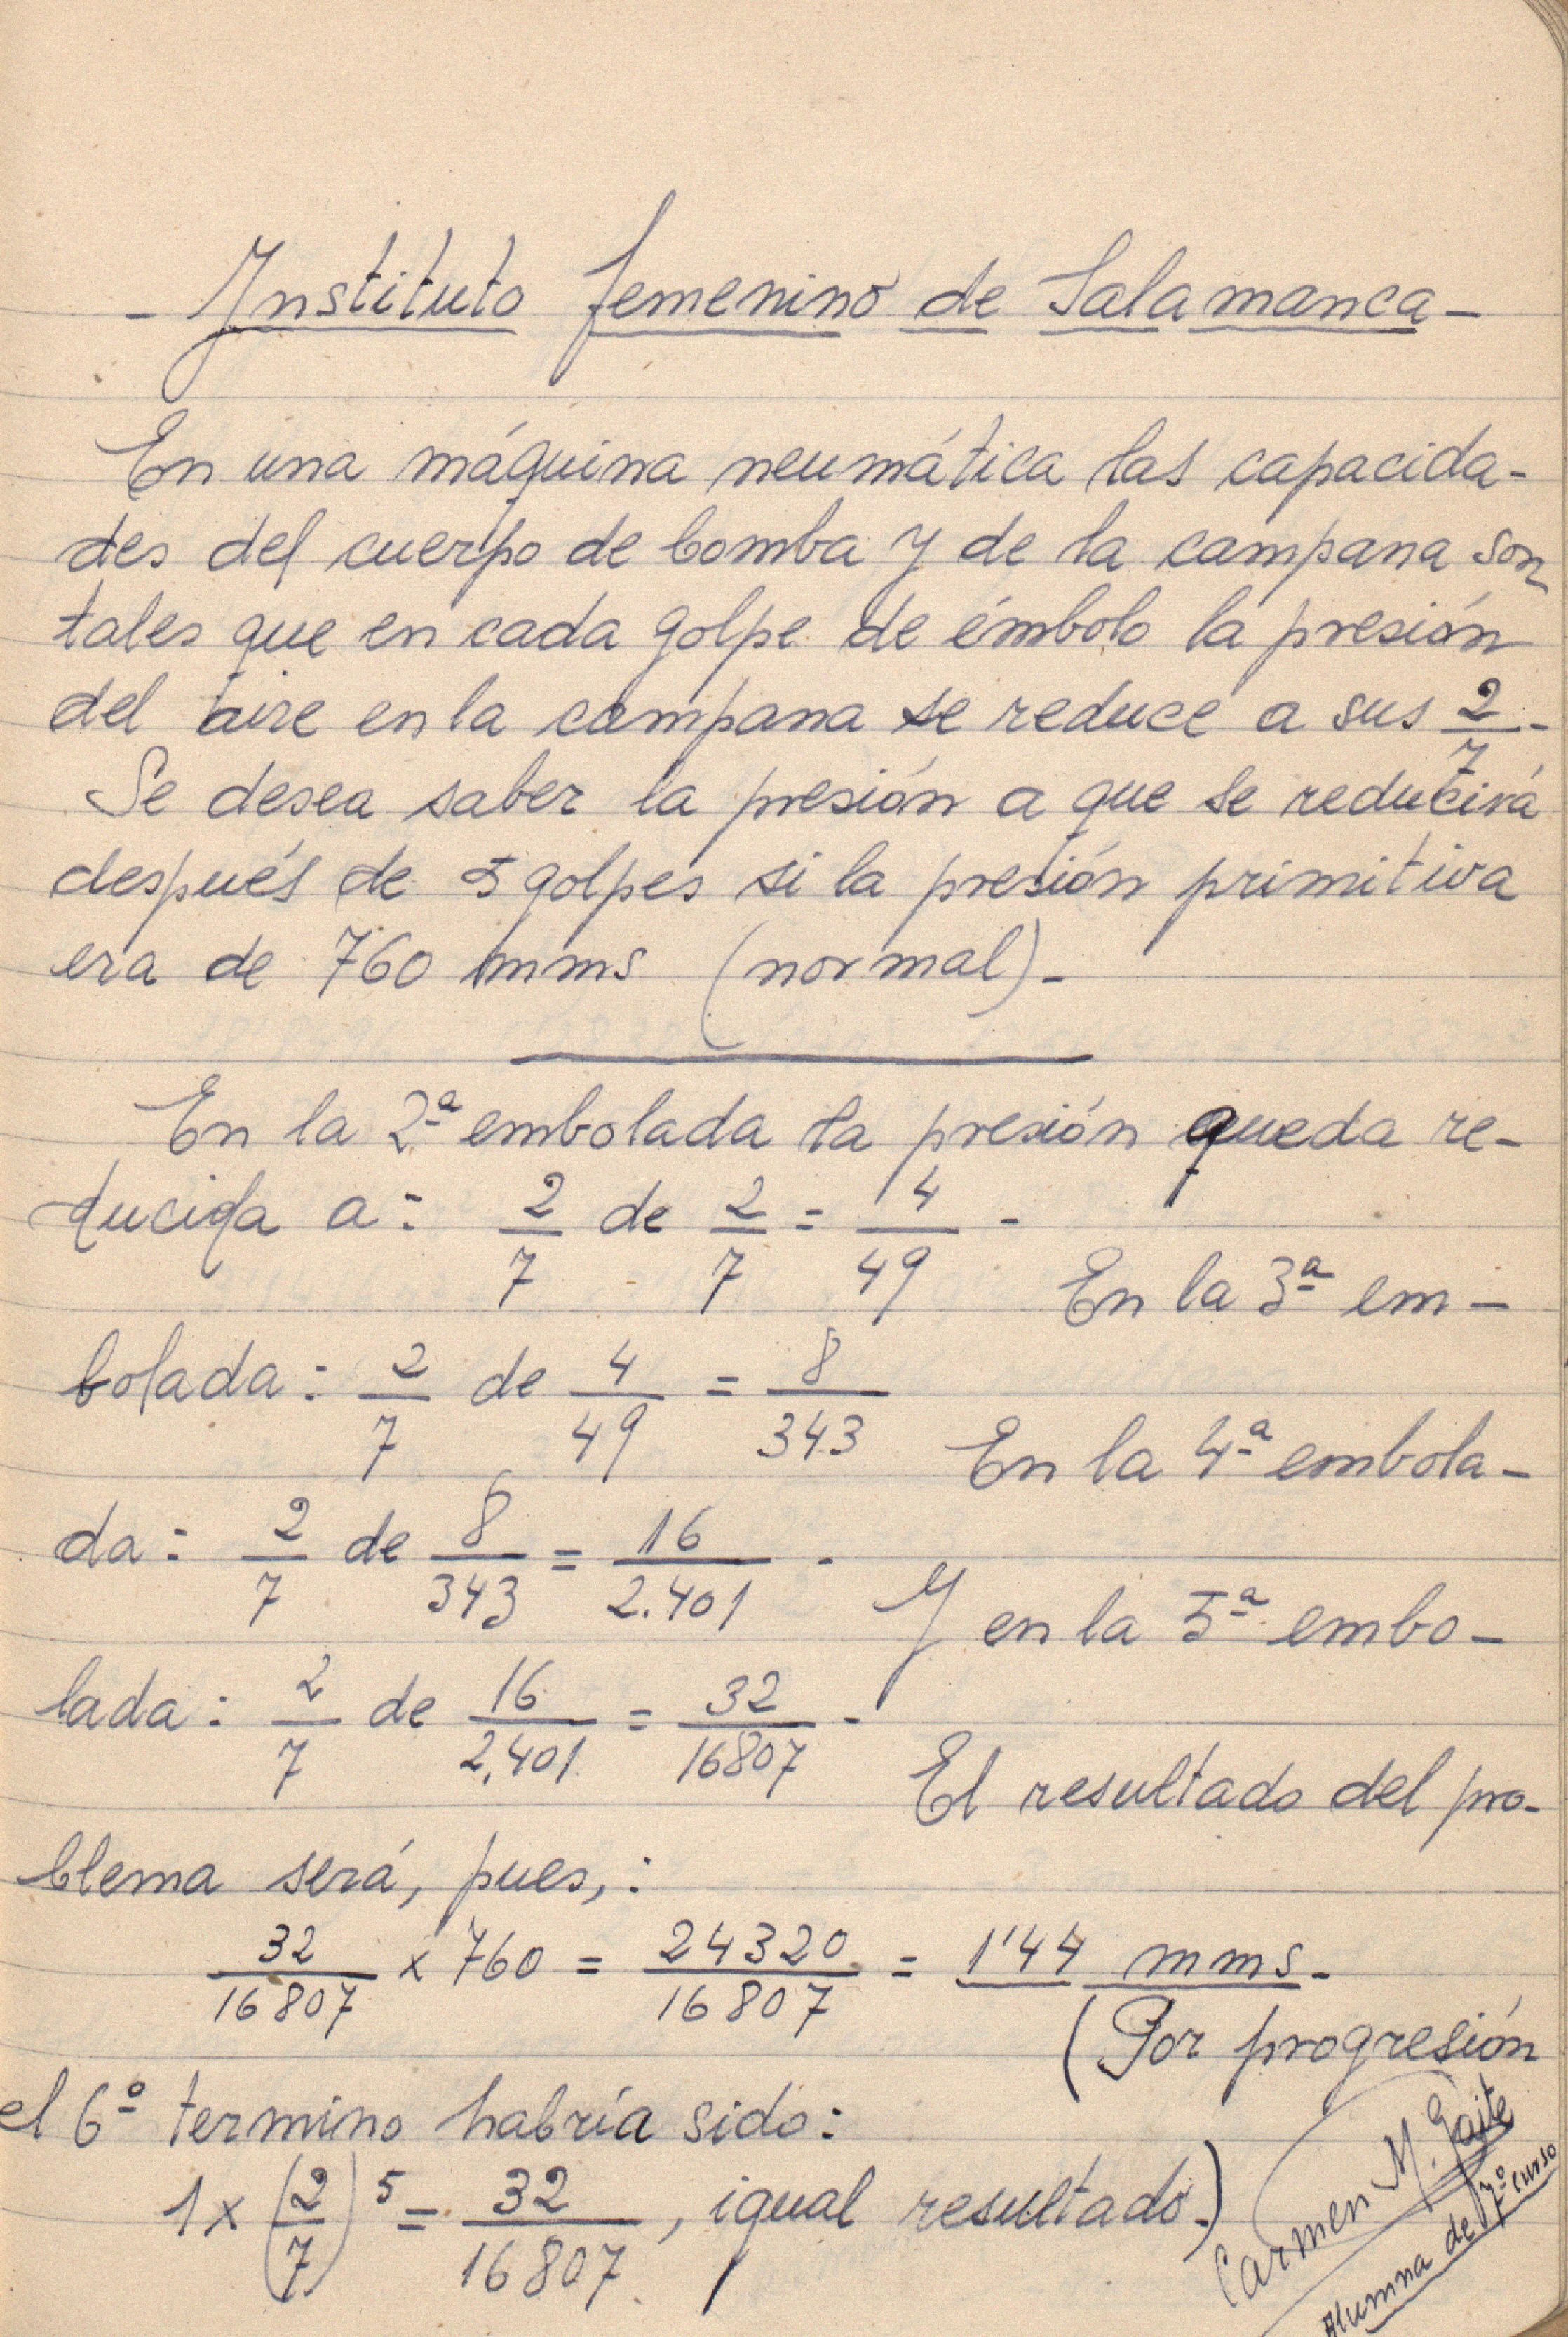 - Instituto femenino de Salamanca -
En una máquina neumática las capacida-
des del cuerpo de bomba y de la campana son
tales que en cada golpe de émbolo la presión
del aire en la campana se reduce a sus 2/7 -
Se desea saber la presión a que se reducirá
después de 5 golpes si la presión primitiva
era de 760 mms (normal) -
En la 2ª embolada la presión queda re-
ducida a: 2/7 de 2/7 = 4/49 -
En la 3ª em-
bolada: 2/7 de 4/49 = 8/343
En la 4ª embola-
da: 2/7 de 8/343 = 16/2.401 -
Y en la 5ª embo-
lada: 2/7 de 16/2.401 = 32/16807 -
El resultado del pro-
blema será, pues,:
32/16807 x 760 = 24320/16807 = 1'44 mms -
(Por progresión
el 6º termino habría sido:
1 x (2/7)^5 = 32/16807, igual resultado.)
Carmen M. Gaite
Alumna de 7º curso